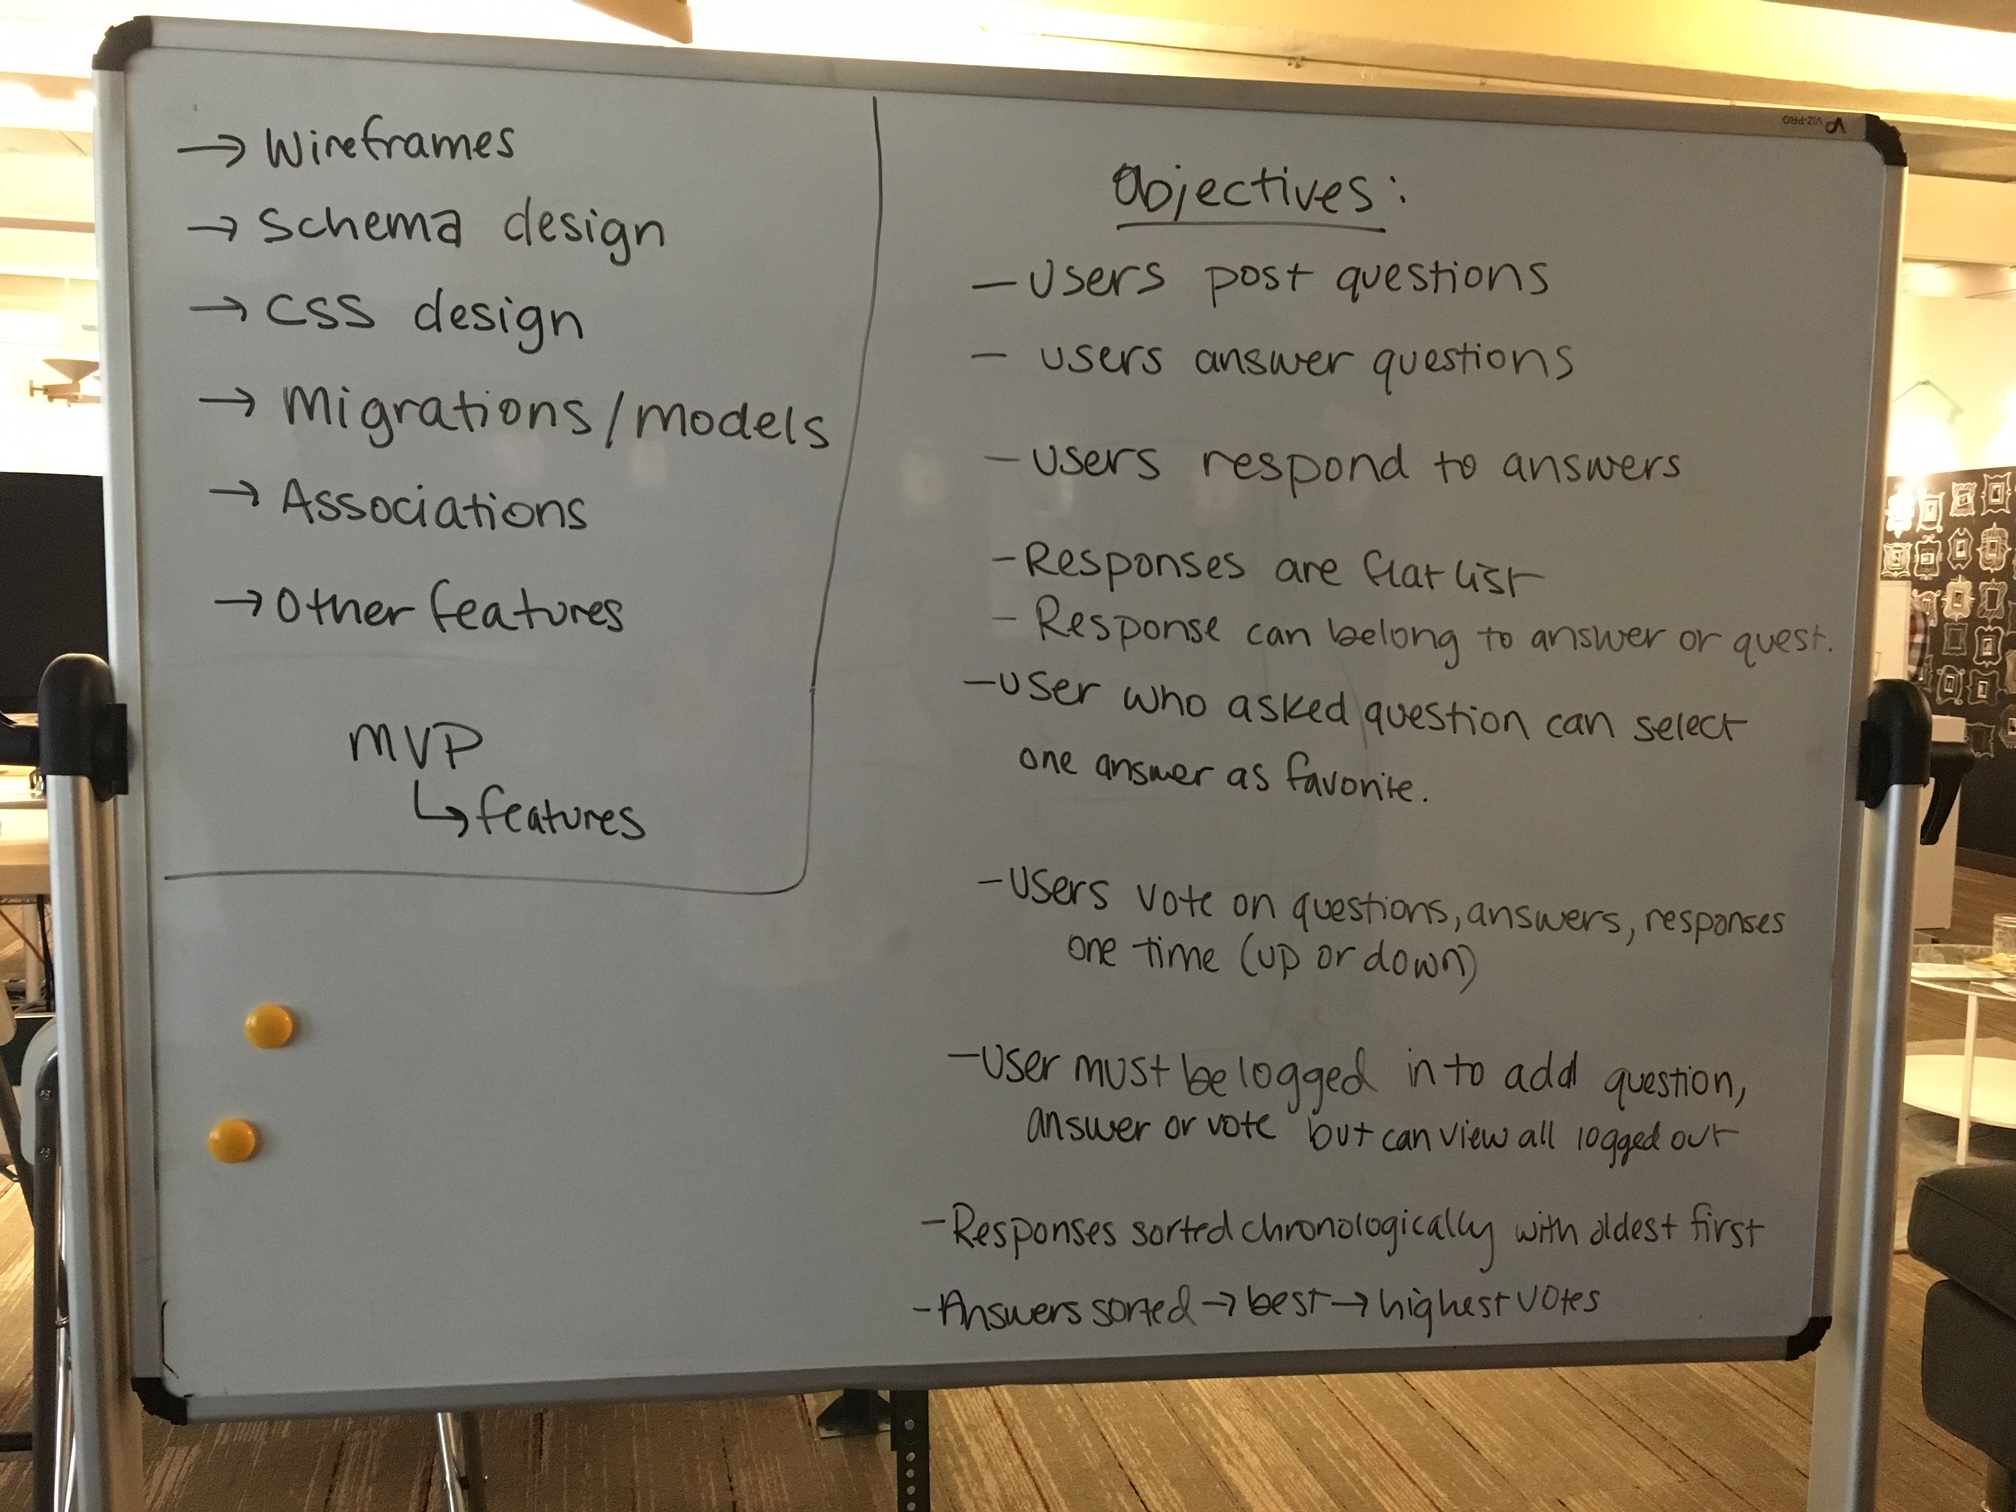 → Wireframes
→ Schema design
→ CSS design
→ Migrations/models
→ Associations
→ Other features
MVP
↳ features
VIZ-PRO
Objectives:
- Users post questions
- users answer questions
- Users respond to answers
- Responses are flat list
- Response can belong to answer or quest.
- User who asked question can select
one answer as favorite.
- Users vote on questions, answers, responses
one time (up or down)
- User must be logged in to add question,
answer or vote but can view all logged out
- Responses sorted chronologically with oldest first
- Answers sorted → best → highest votes